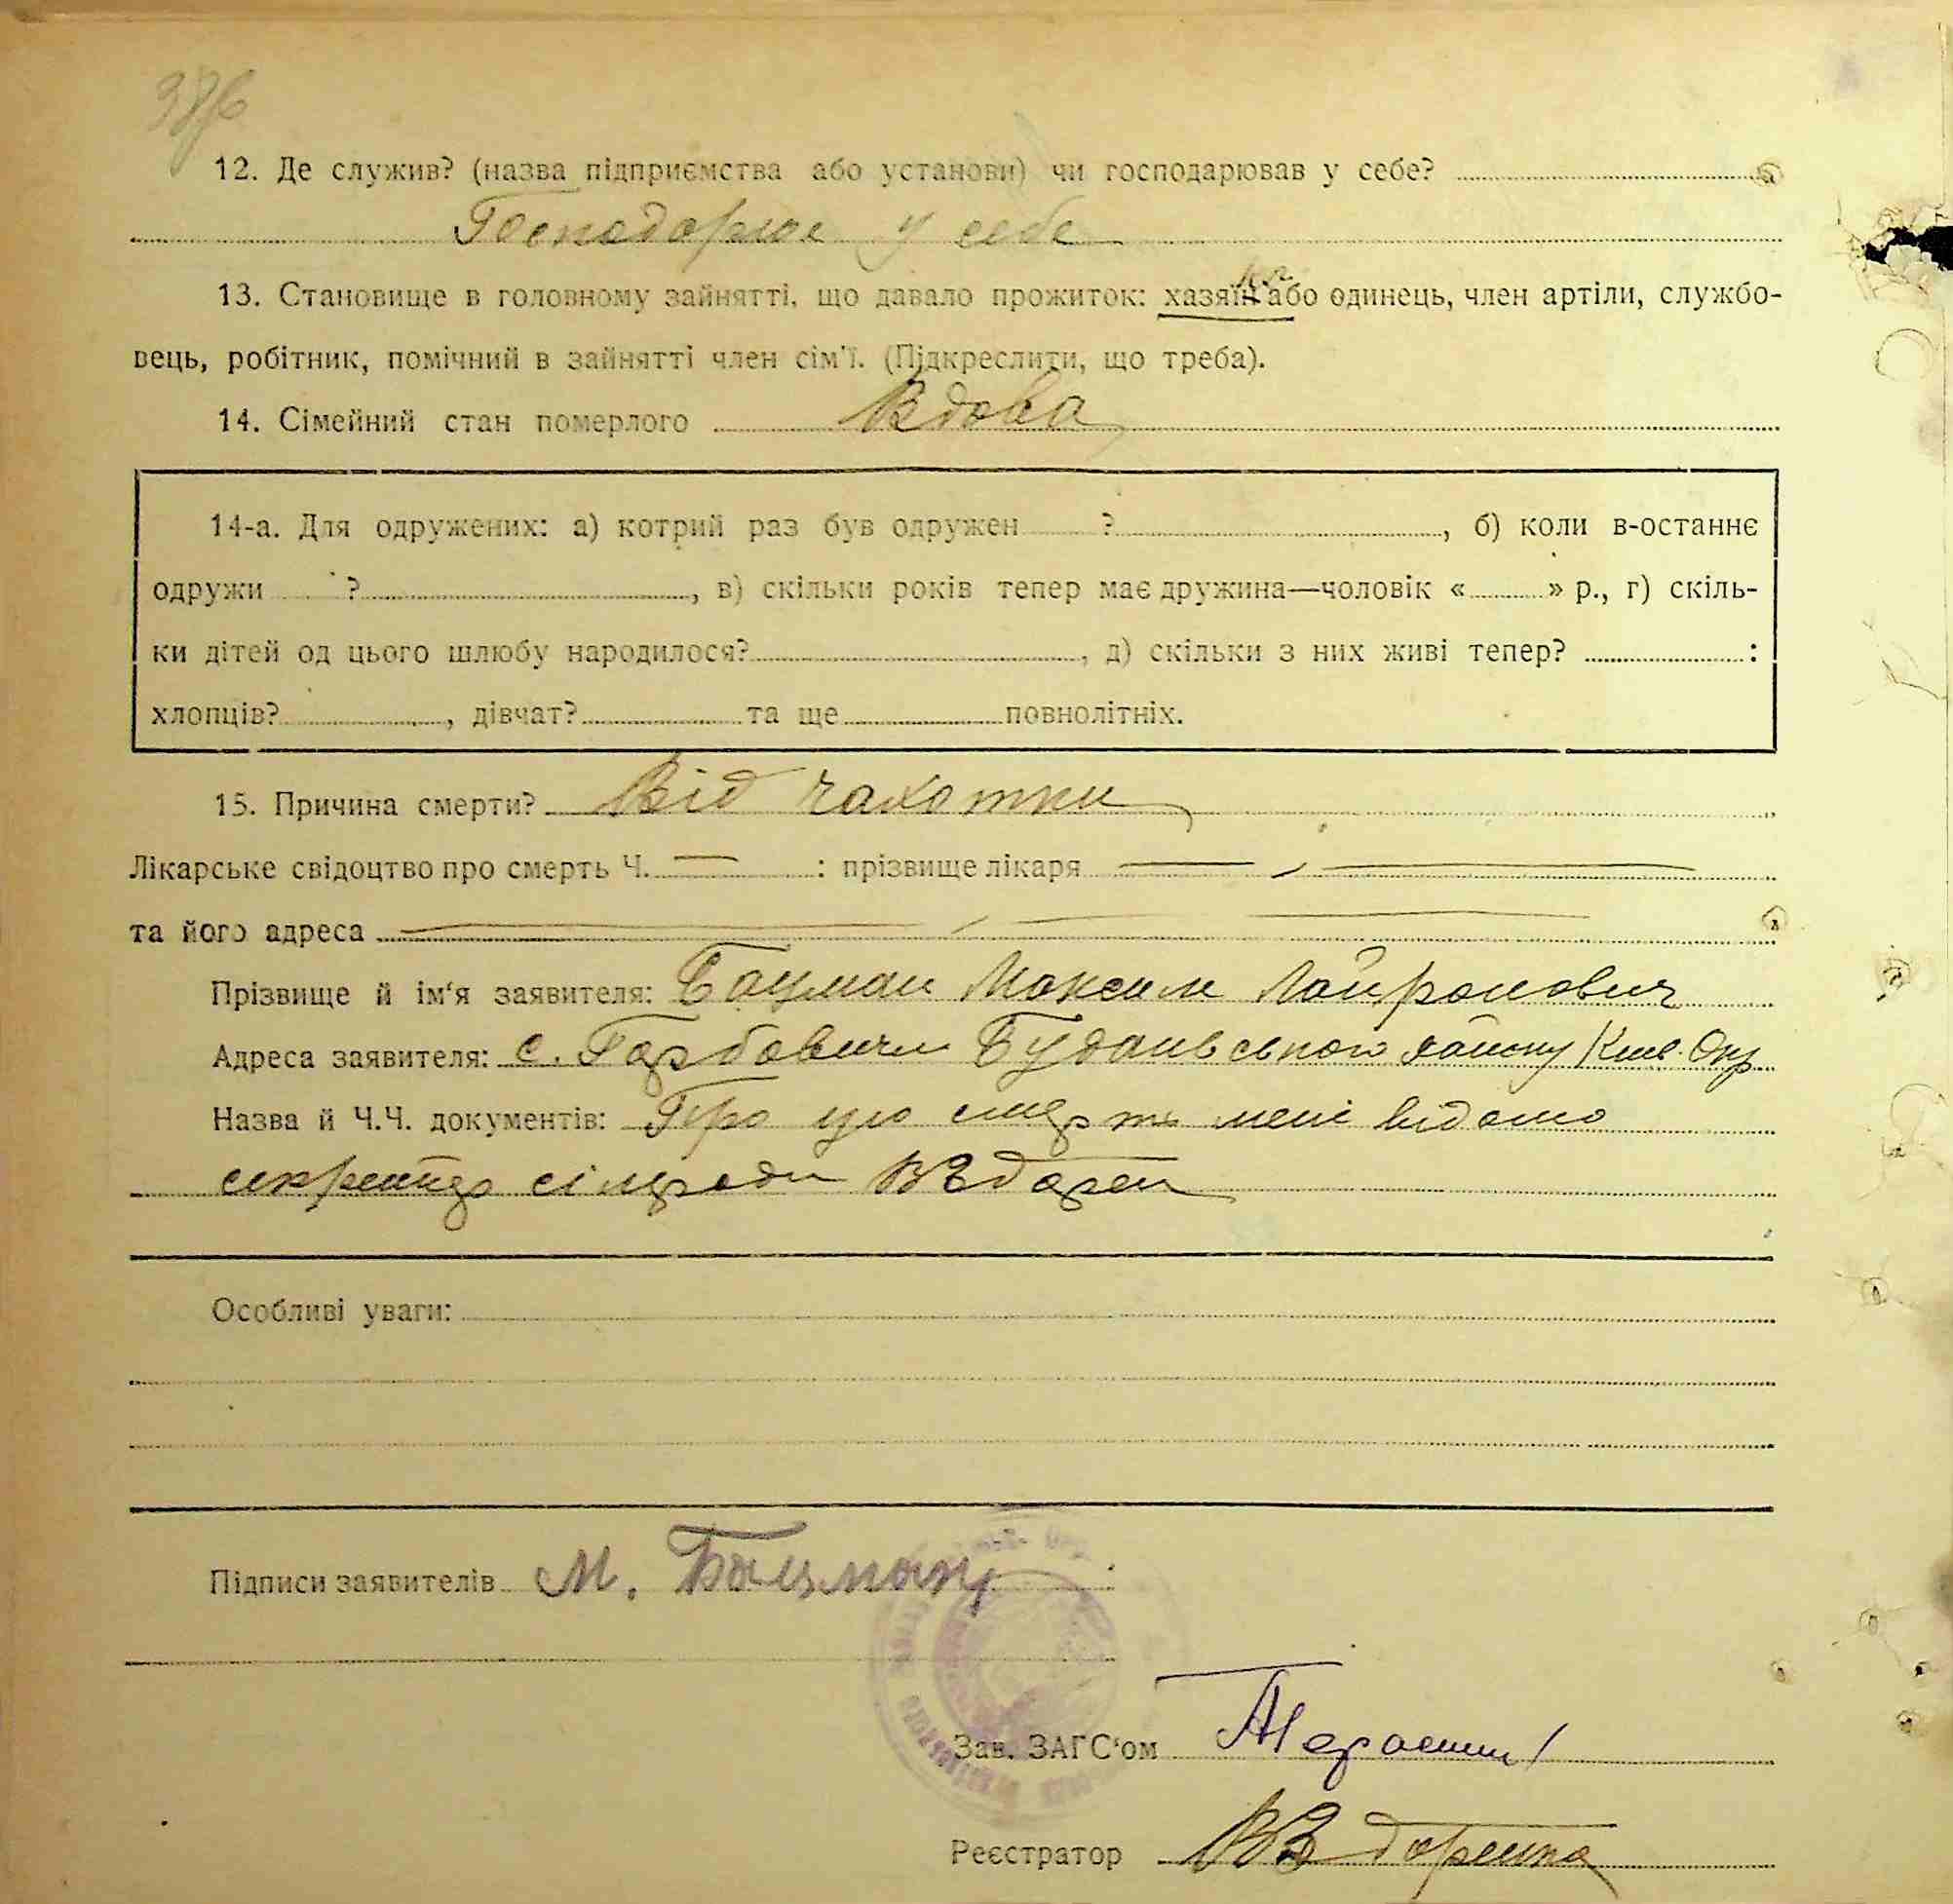 12. Де служив? (назва підприємства або установи) чи господарював у себе?
Господорює у себе
13. Становище в головному зайнятті, що давало прожиток: хазяїн або одинець, член артіли, службо-
вець, робітник, помічний в зайнятті член сім'ї. (Підкреслити, що треба).
14. Сімейний стан померлого Вдова
14-а. Для одружених: а) котрий раз був одружен ?, б) коли в-останнє
одружи ?, в) скільки років тепер має дружина—чоловік « » р., г) скіль-
ки дітей од цього шлюбу народилося?, д) скільки з них живі тепер? :
хлопців?, дівчат? та ще повнолітніх.
15. Причина смерти? Від чахотки
Лікарське свідоцтво про смерть Ч. — : прізвище лікаря —
та його адреса —
Прізвище й ім'я заявителя: Бацман Максим
Адреса заявителя: с. Горбовичи Будаївського району Киів. Окр
Назва й Ч.Ч. документів: Про цю смерть мені відомо
секретар сільради
Особливі уваги:
Підписи заявителів М. Бацман :
Зав. ЗАГС'ом
Реєстратор